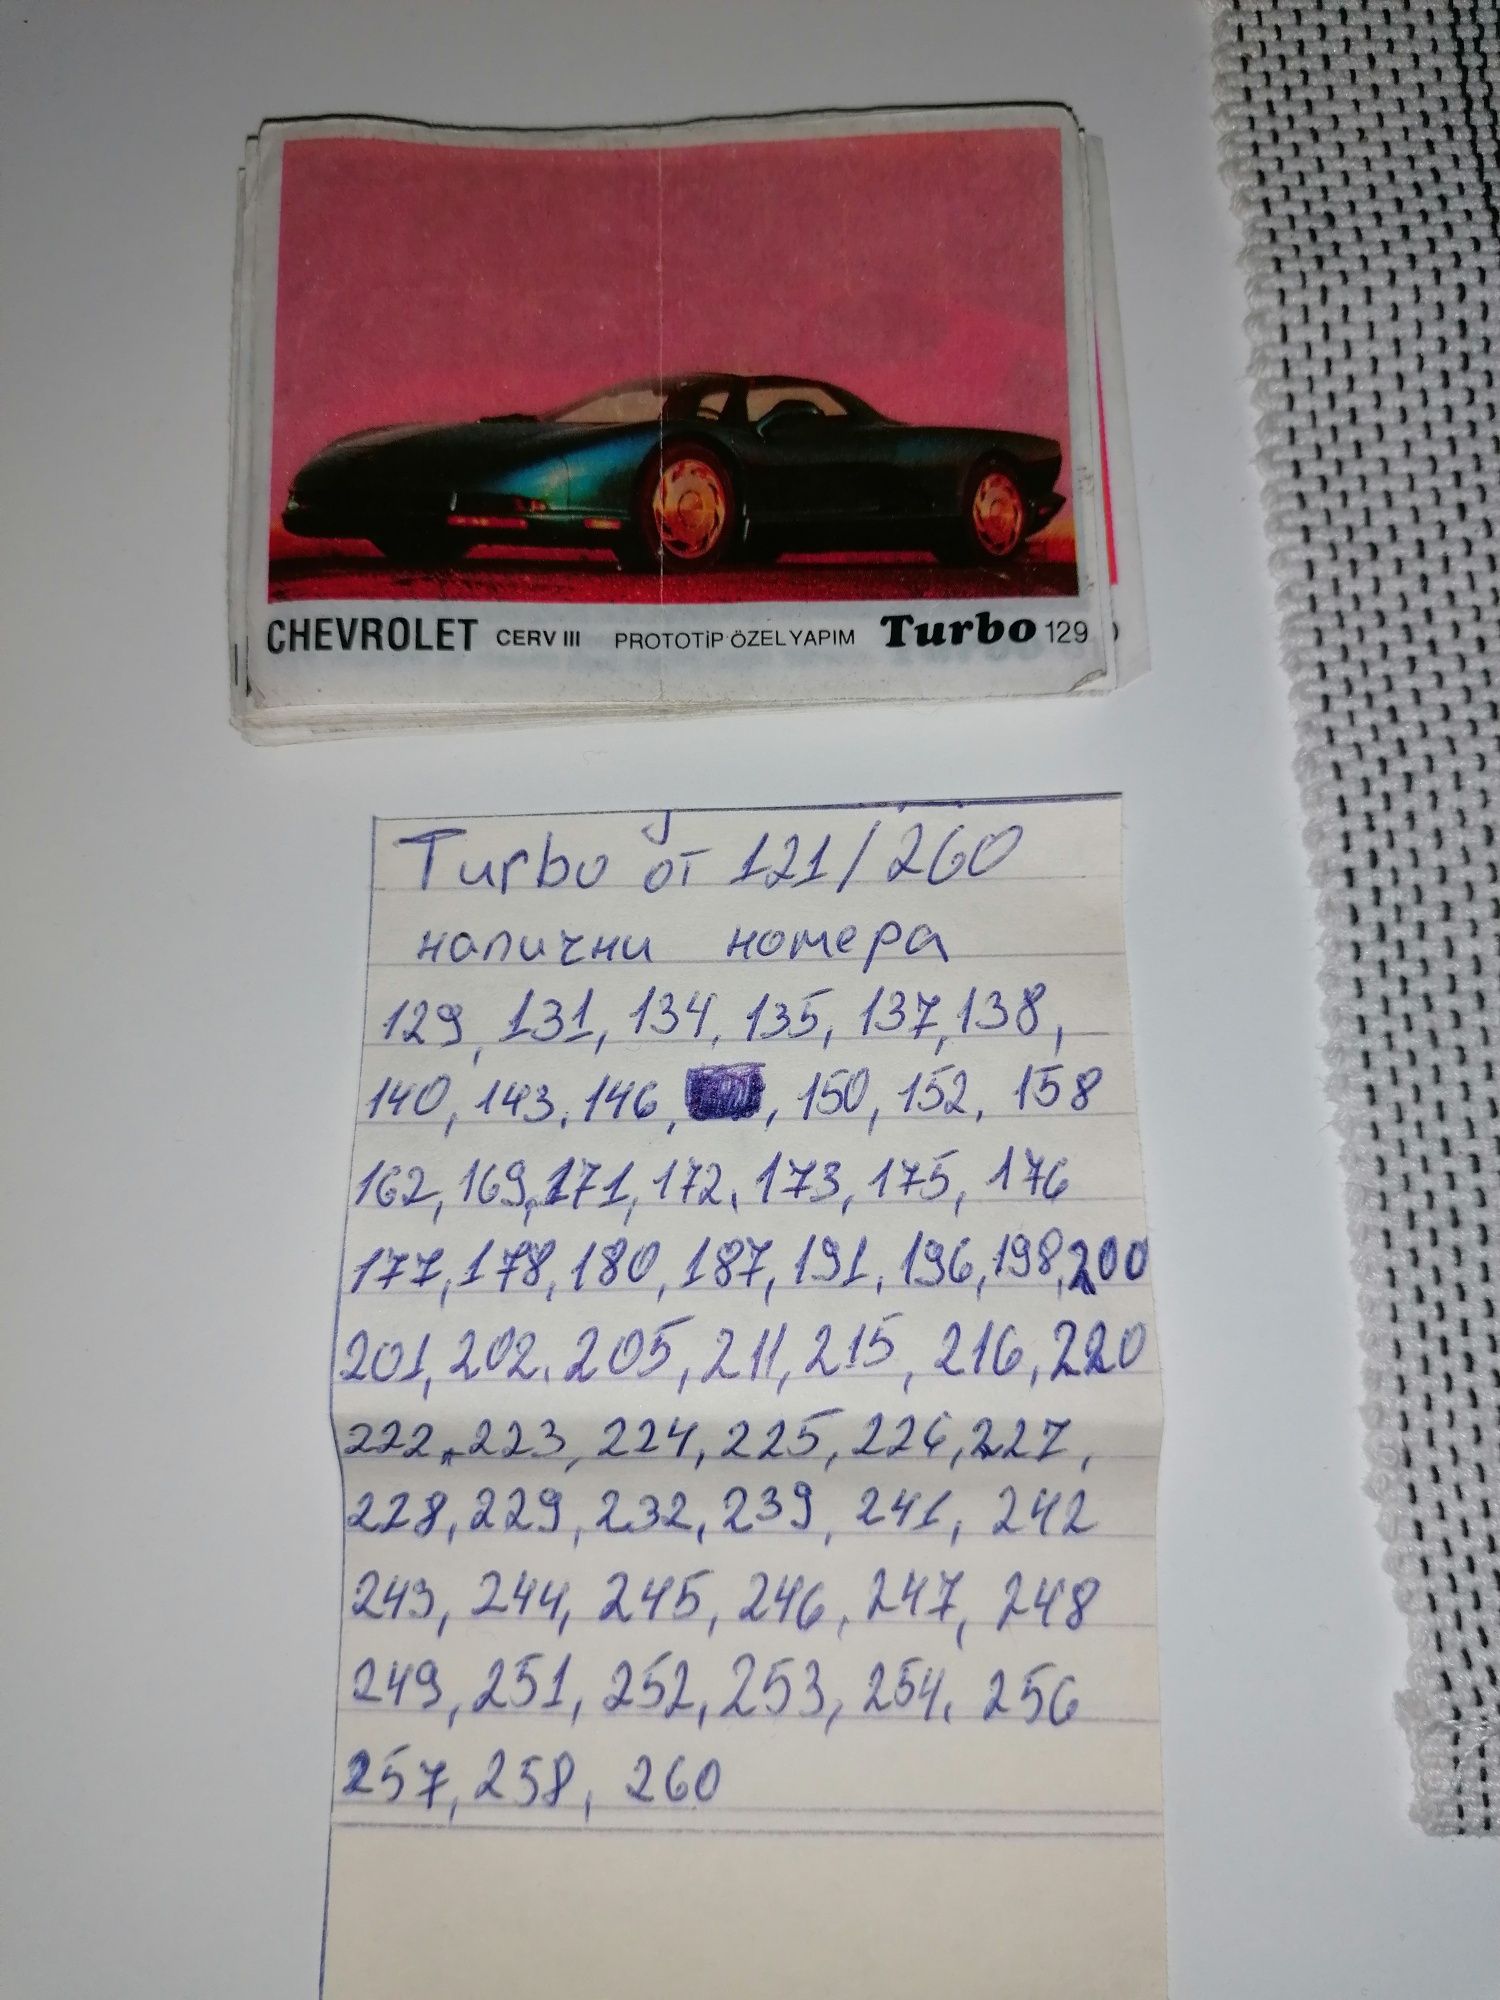 CHEVROLET CERV III PROTOTİP ÖZEL YAPIM Turbo 129
Turbo от 121/260
налични номера
129, 131, 134, 135, 137, 138,
140, 143, 146, , 150, 152, 158
162, 169, 171, 172, 173, 175, 176
177, 178, 180, 187, 191, 196, 198, 200
201, 202, 205, 211, 215, 216, 220
222, 223, 224, 225, 226, 227,
228, 229, 232, 239, 241, 242
243, 244, 245, 246, 247, 248
249, 251, 252, 253, 254, 256
257, 258, 260